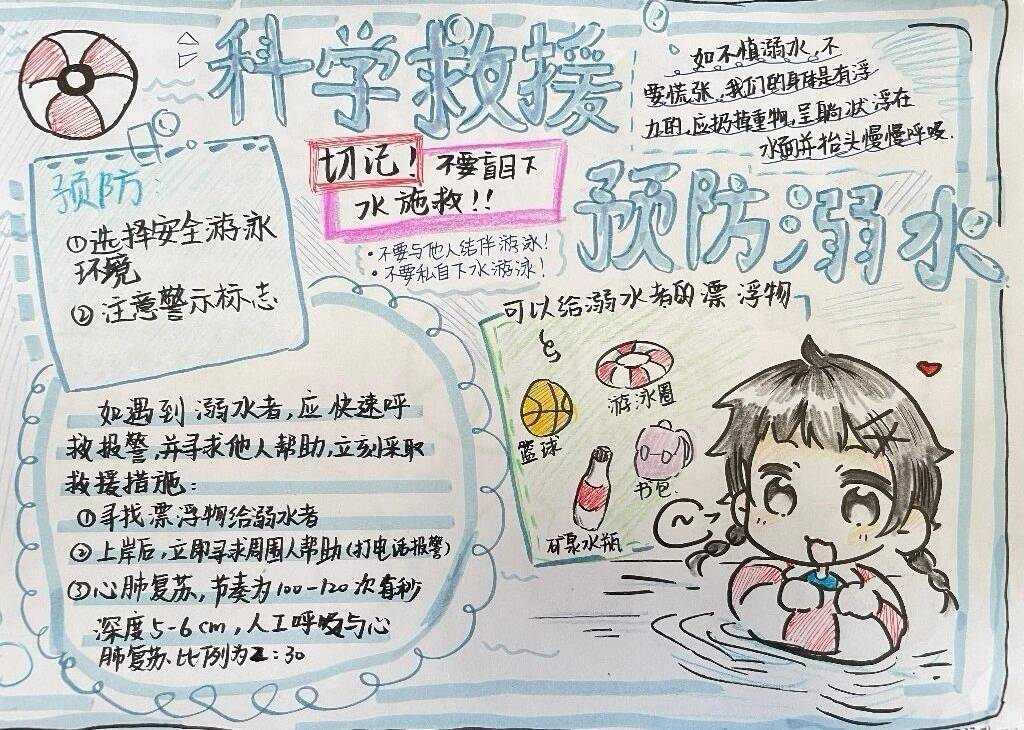 科学救援
如不慎溺水,不
要慌张,我们的身体是有浮
力的,应扔掉重物,呈躺状浮在
水面并抬头慢慢呼吸.
切记! 不要盲目下
水施救!!
·不要与他人结伴游泳!
·不要私自下水游泳!
预防溺水
预防:
①选择安全游泳
环境
②注意警示标志
如遇到溺水者,应快速呼
救报警,并寻求他人帮助,立刻采取
救援措施:
①寻找漂浮物给溺水者
②上岸后,立即寻求周围人帮助(打电话报警)
③心肺复苏,节奏为100-120次每秒
深度5-6cm,人工呼吸与心
肺复苏.比例为2:30
可以给溺水者的漂浮物
游泳圈
篮球
书包.
矿泉水瓶